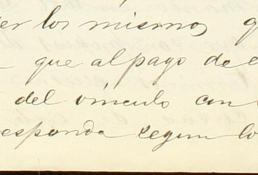 er los mismos q
que al pago de e
del vínculo con
esponda segun lo